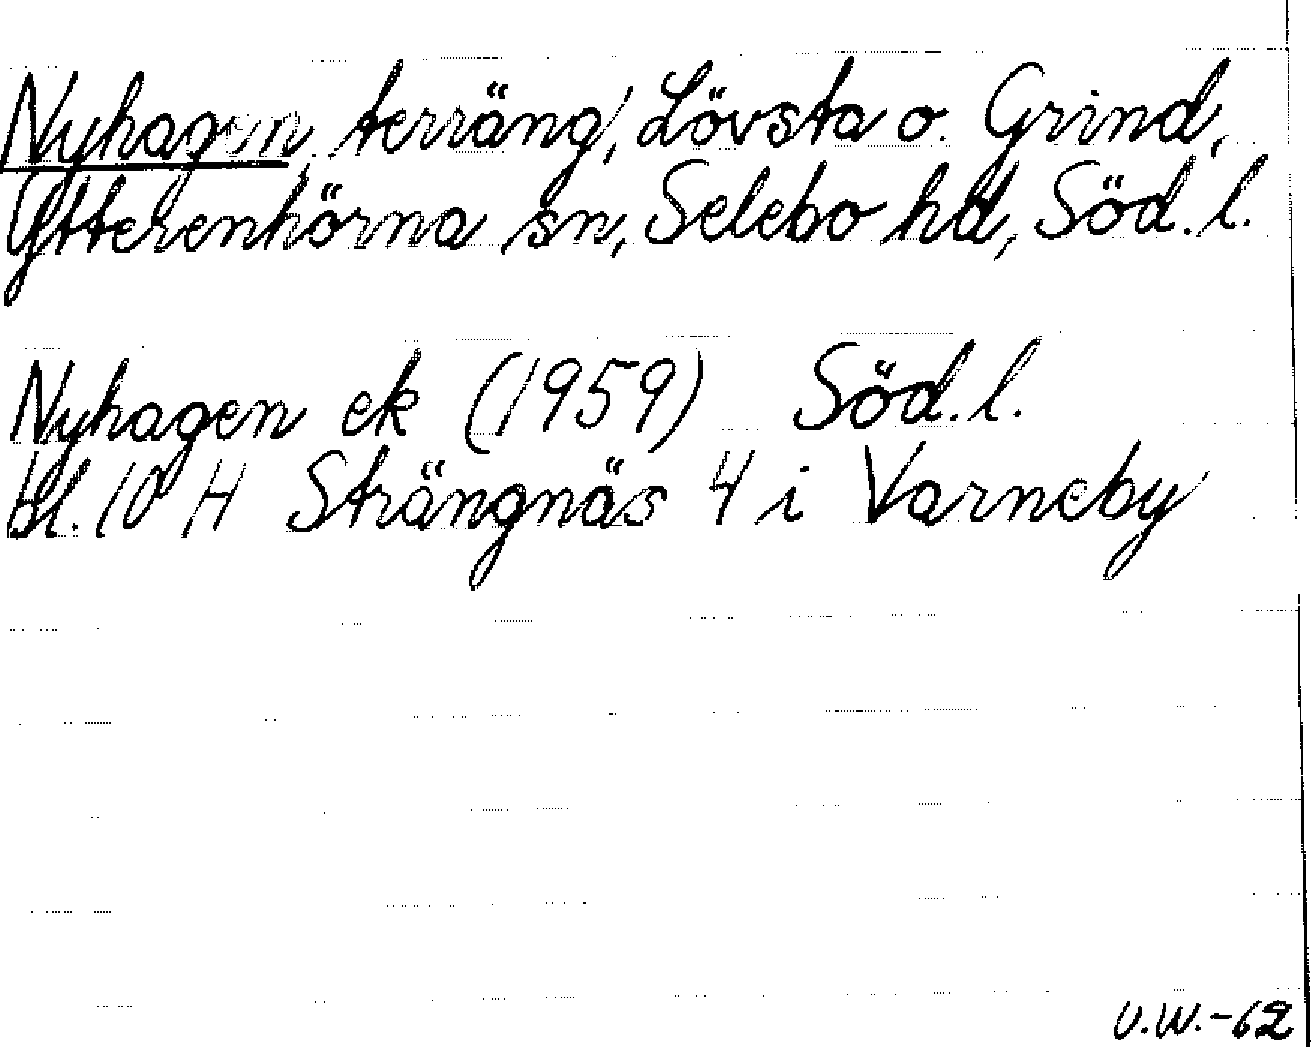 Nyhagen, terräng, Lövsta o. Grind,
Ytterenhörna sn, Selebo hd, Söd. l.
Nyhagen ek (1959) Söd. l.
bl. 10 H Strängnäs 4 i Varneby
U.W.-62